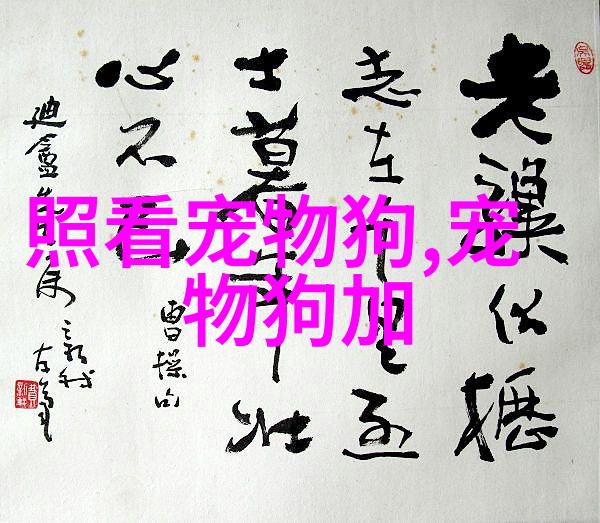 照看宠物狗,宠
物狗加
老驥伏櫪
志在千里烈
士暮年壮
心不已
曹操句